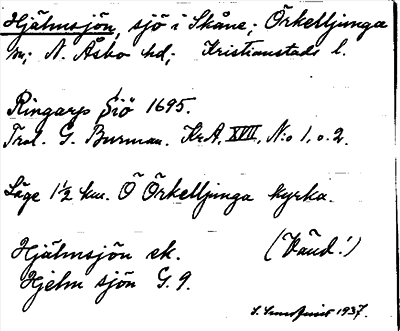 Hjälmsjön, sjö i Skåne; Örkelljunga
sn; N. Åsbo hd; Kristianstads l.
Ringarp Siö 1695.
Trol. G. Burman. KrA, XVII, N:o 1, o. 2.
Läge 1½ km. Ö Örkelljunga kyrka.
Hjälmsjön ek. (Vänd!)
Hjelm sjön G. 9.
1937.